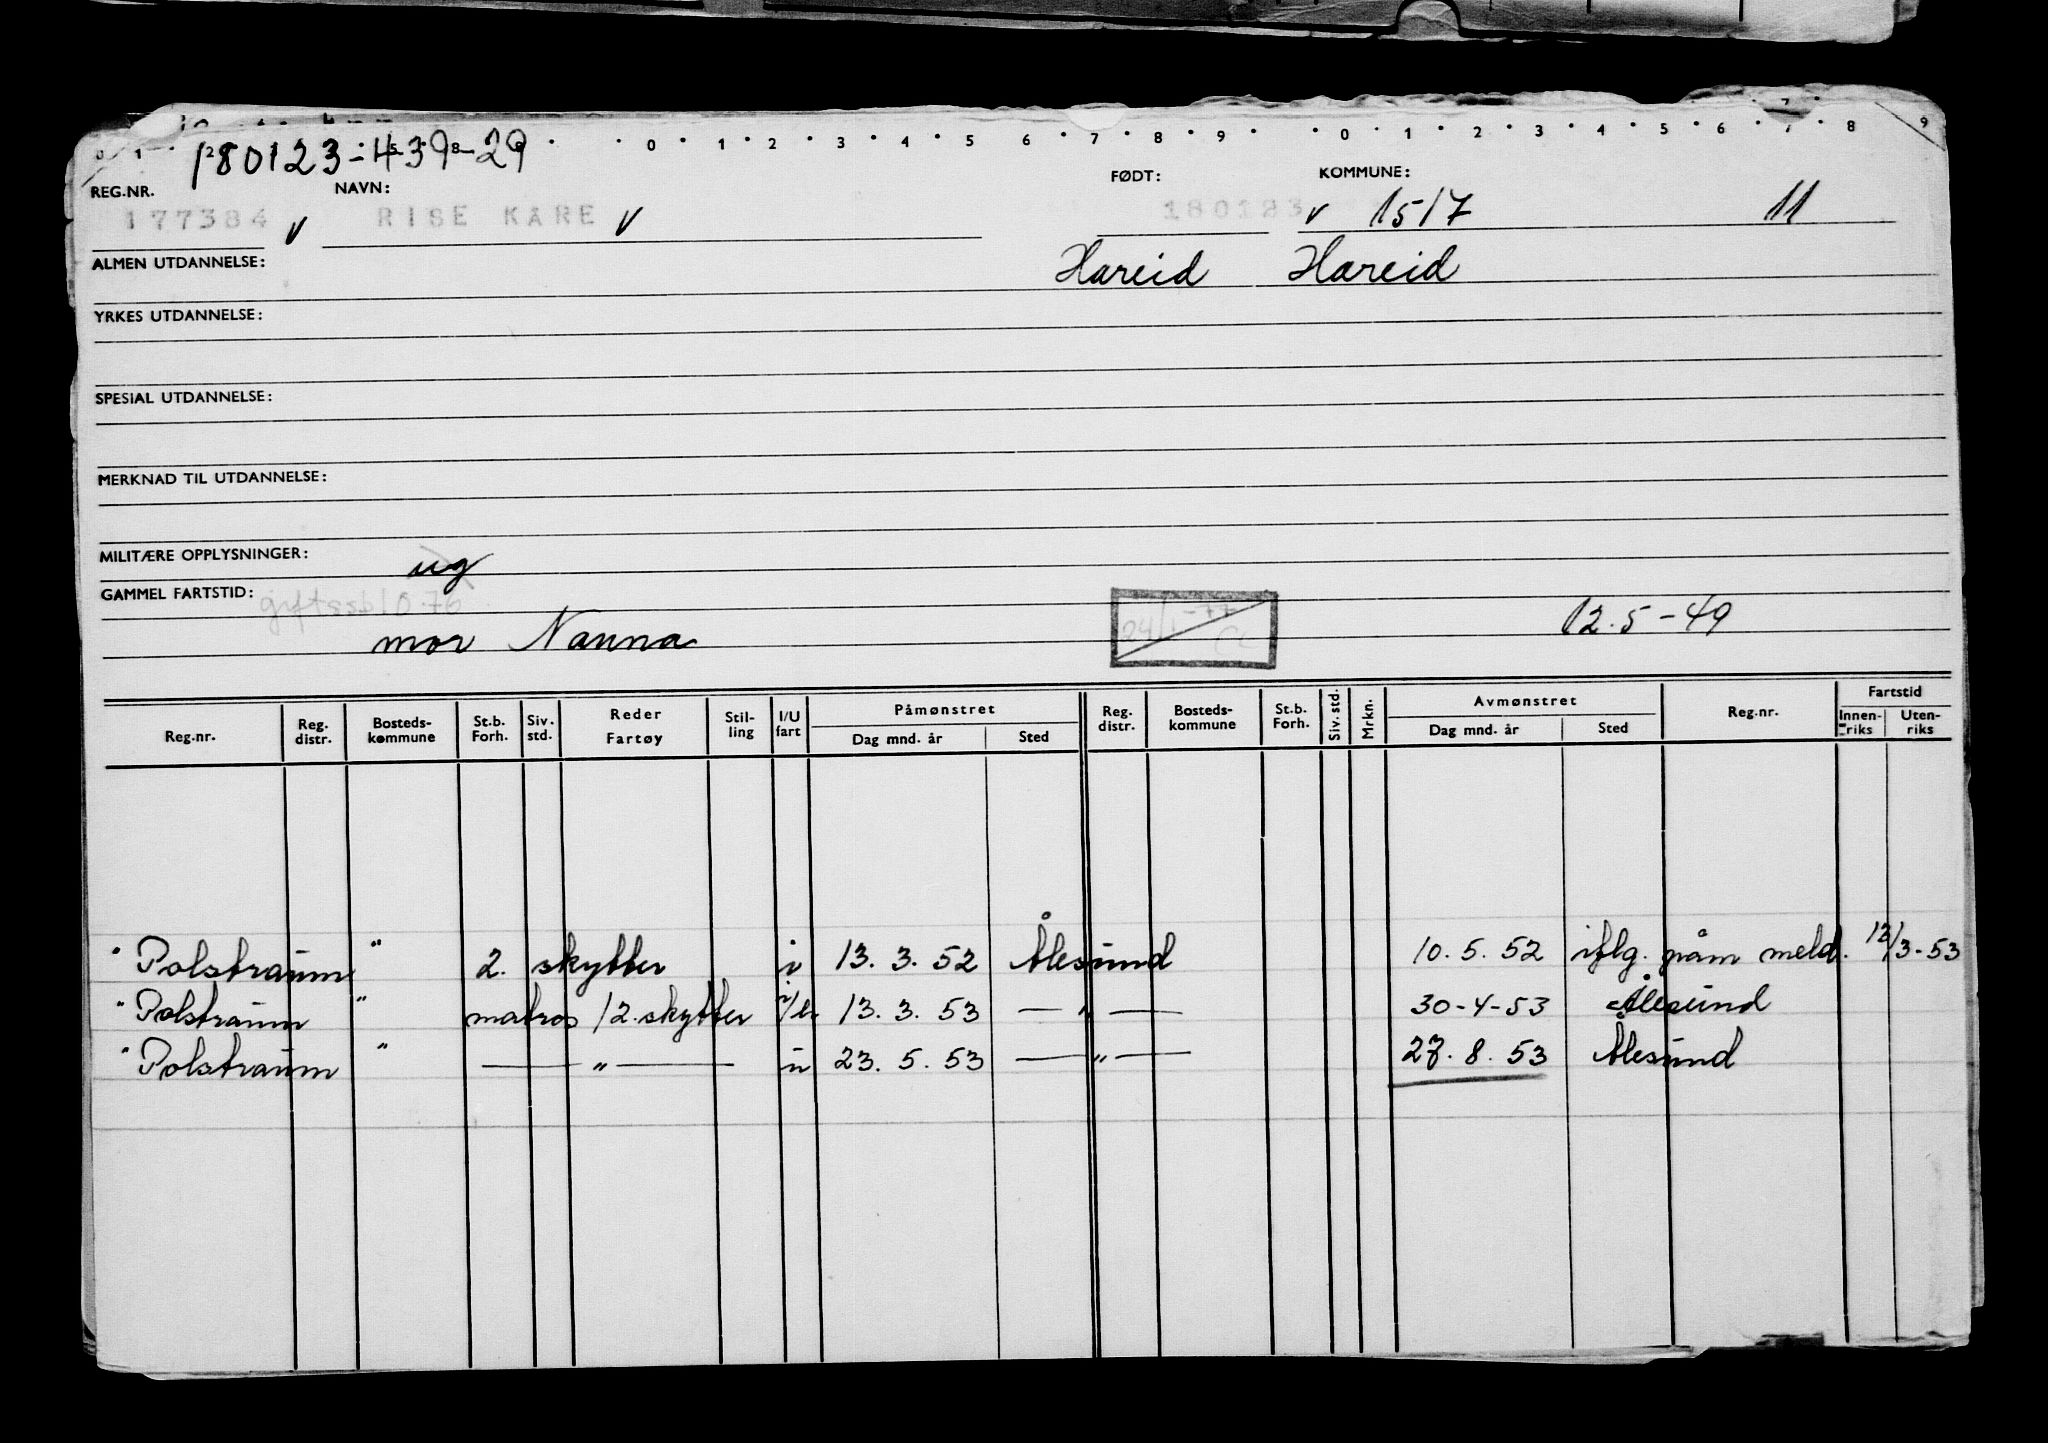 0 1 2 5 8 0 1 2 3 4 5 6 7 8 9 0 1 2 3 4 5 6 7 8 9
180123-439-29
REG.NR. NAVN: FØDT: KOMMUNE:
177384 v RISE KARE v 180123 v 1517 11
ALMEN UTDANNELSE: Hareid Hareid
YRKES UTDANNELSE:
SPESIAL UTDANNELSE:
MERKNAD TIL UTDANNELSE:
MILITÆRE OPPLYSNINGER: ug
GAMMEL FARTSTID:
mor Nanna 24/1-77 12.5-49
Reg.nr. Reg. distr. Bosteds-kommune St.b. Forh. Siv. std. Reder Fartøy Stil-ling I/U fart Påmønstret Dag mnd. år Sted Reg. distr. Bosteds-kommune St.b. Forh. Siv. std. Mrkn. Avmønstret Dag mnd. år Sted Reg.nr. Fartstid Innen-riks Uten-riks
" Polstraum " 2. skytter i 13. 3. 52 Ålesund 10. 5. 52 iflg. påm meld. 13/3-53
" Polstraum " matros / 2. skytter i/u 13. 3. 53 — " — 30-4-53 Ålesund
" Polstraum " — " — u 23. 5. 53 — " — 27. 8. 53 Ålesund